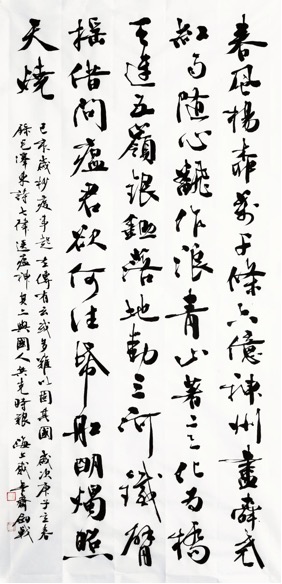 春风杨柳万千条六亿神州尽舜尧
红雨随心翻作浪青山着意化为桥
天连五岭银锄落地动三河铁臂
摇借问瘟君欲何往纸船明烛照
天烧
己亥岁杪疫事起左传有云或多难以固其国 岁次庚子立春
录毛泽东诗七律送瘟神其二与国人共克时艰 海上